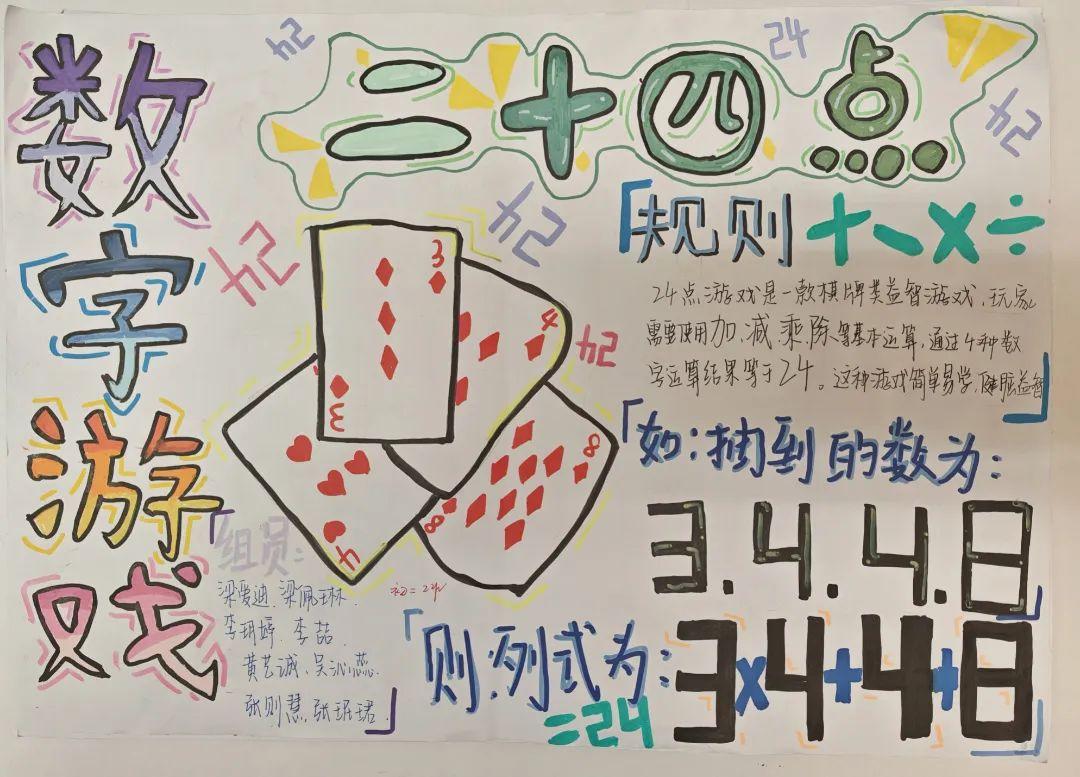 数字游戏
二十四点
24
24
24
24
24
24
「规则 + - × ÷
24点游戏是一款棋牌类益智游戏,玩家
需要使用加、减、乘、除等基本运算,通过4种数
字运算结果等于24。这种游戏简单易学,健脑益智」
3
3
4
4
8
8
「如:抽到的数为:
3.4.4.8」
「则:列式为:
3×4+4+8」
=24
「组员:
梁爱迪、梁佩琳、
李玥婷、李喆
黄艺诚、吴沁蕊
张则慧、张珺珺」
初二2班